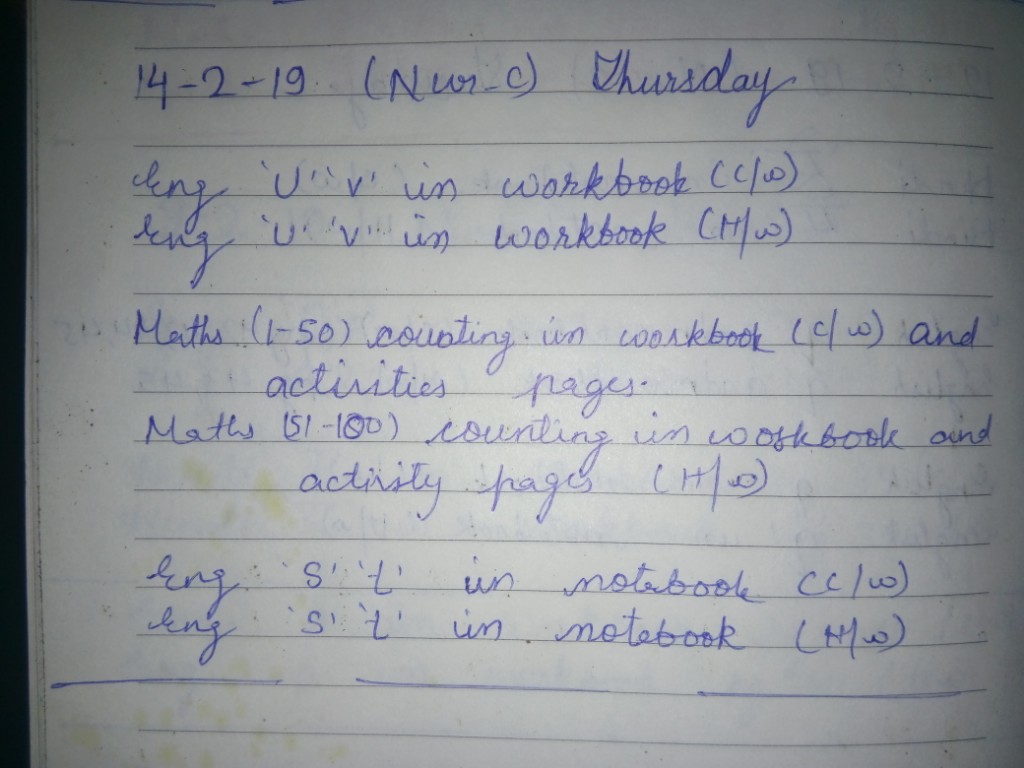 14-2-19 (Nur-C) Thursday
Eng 'U' 'V' in workbook (C/w)
Eng 'U' 'V' in workbook (H/w)
Maths (1-50) counting in workbook (C/w) and
activities pages.
Maths (51-100) counting in workbook and
activity pages (H/w)
Eng 'S' 't' in notebook (C/w)
Eng 'S' 't' in notebook (H/w)